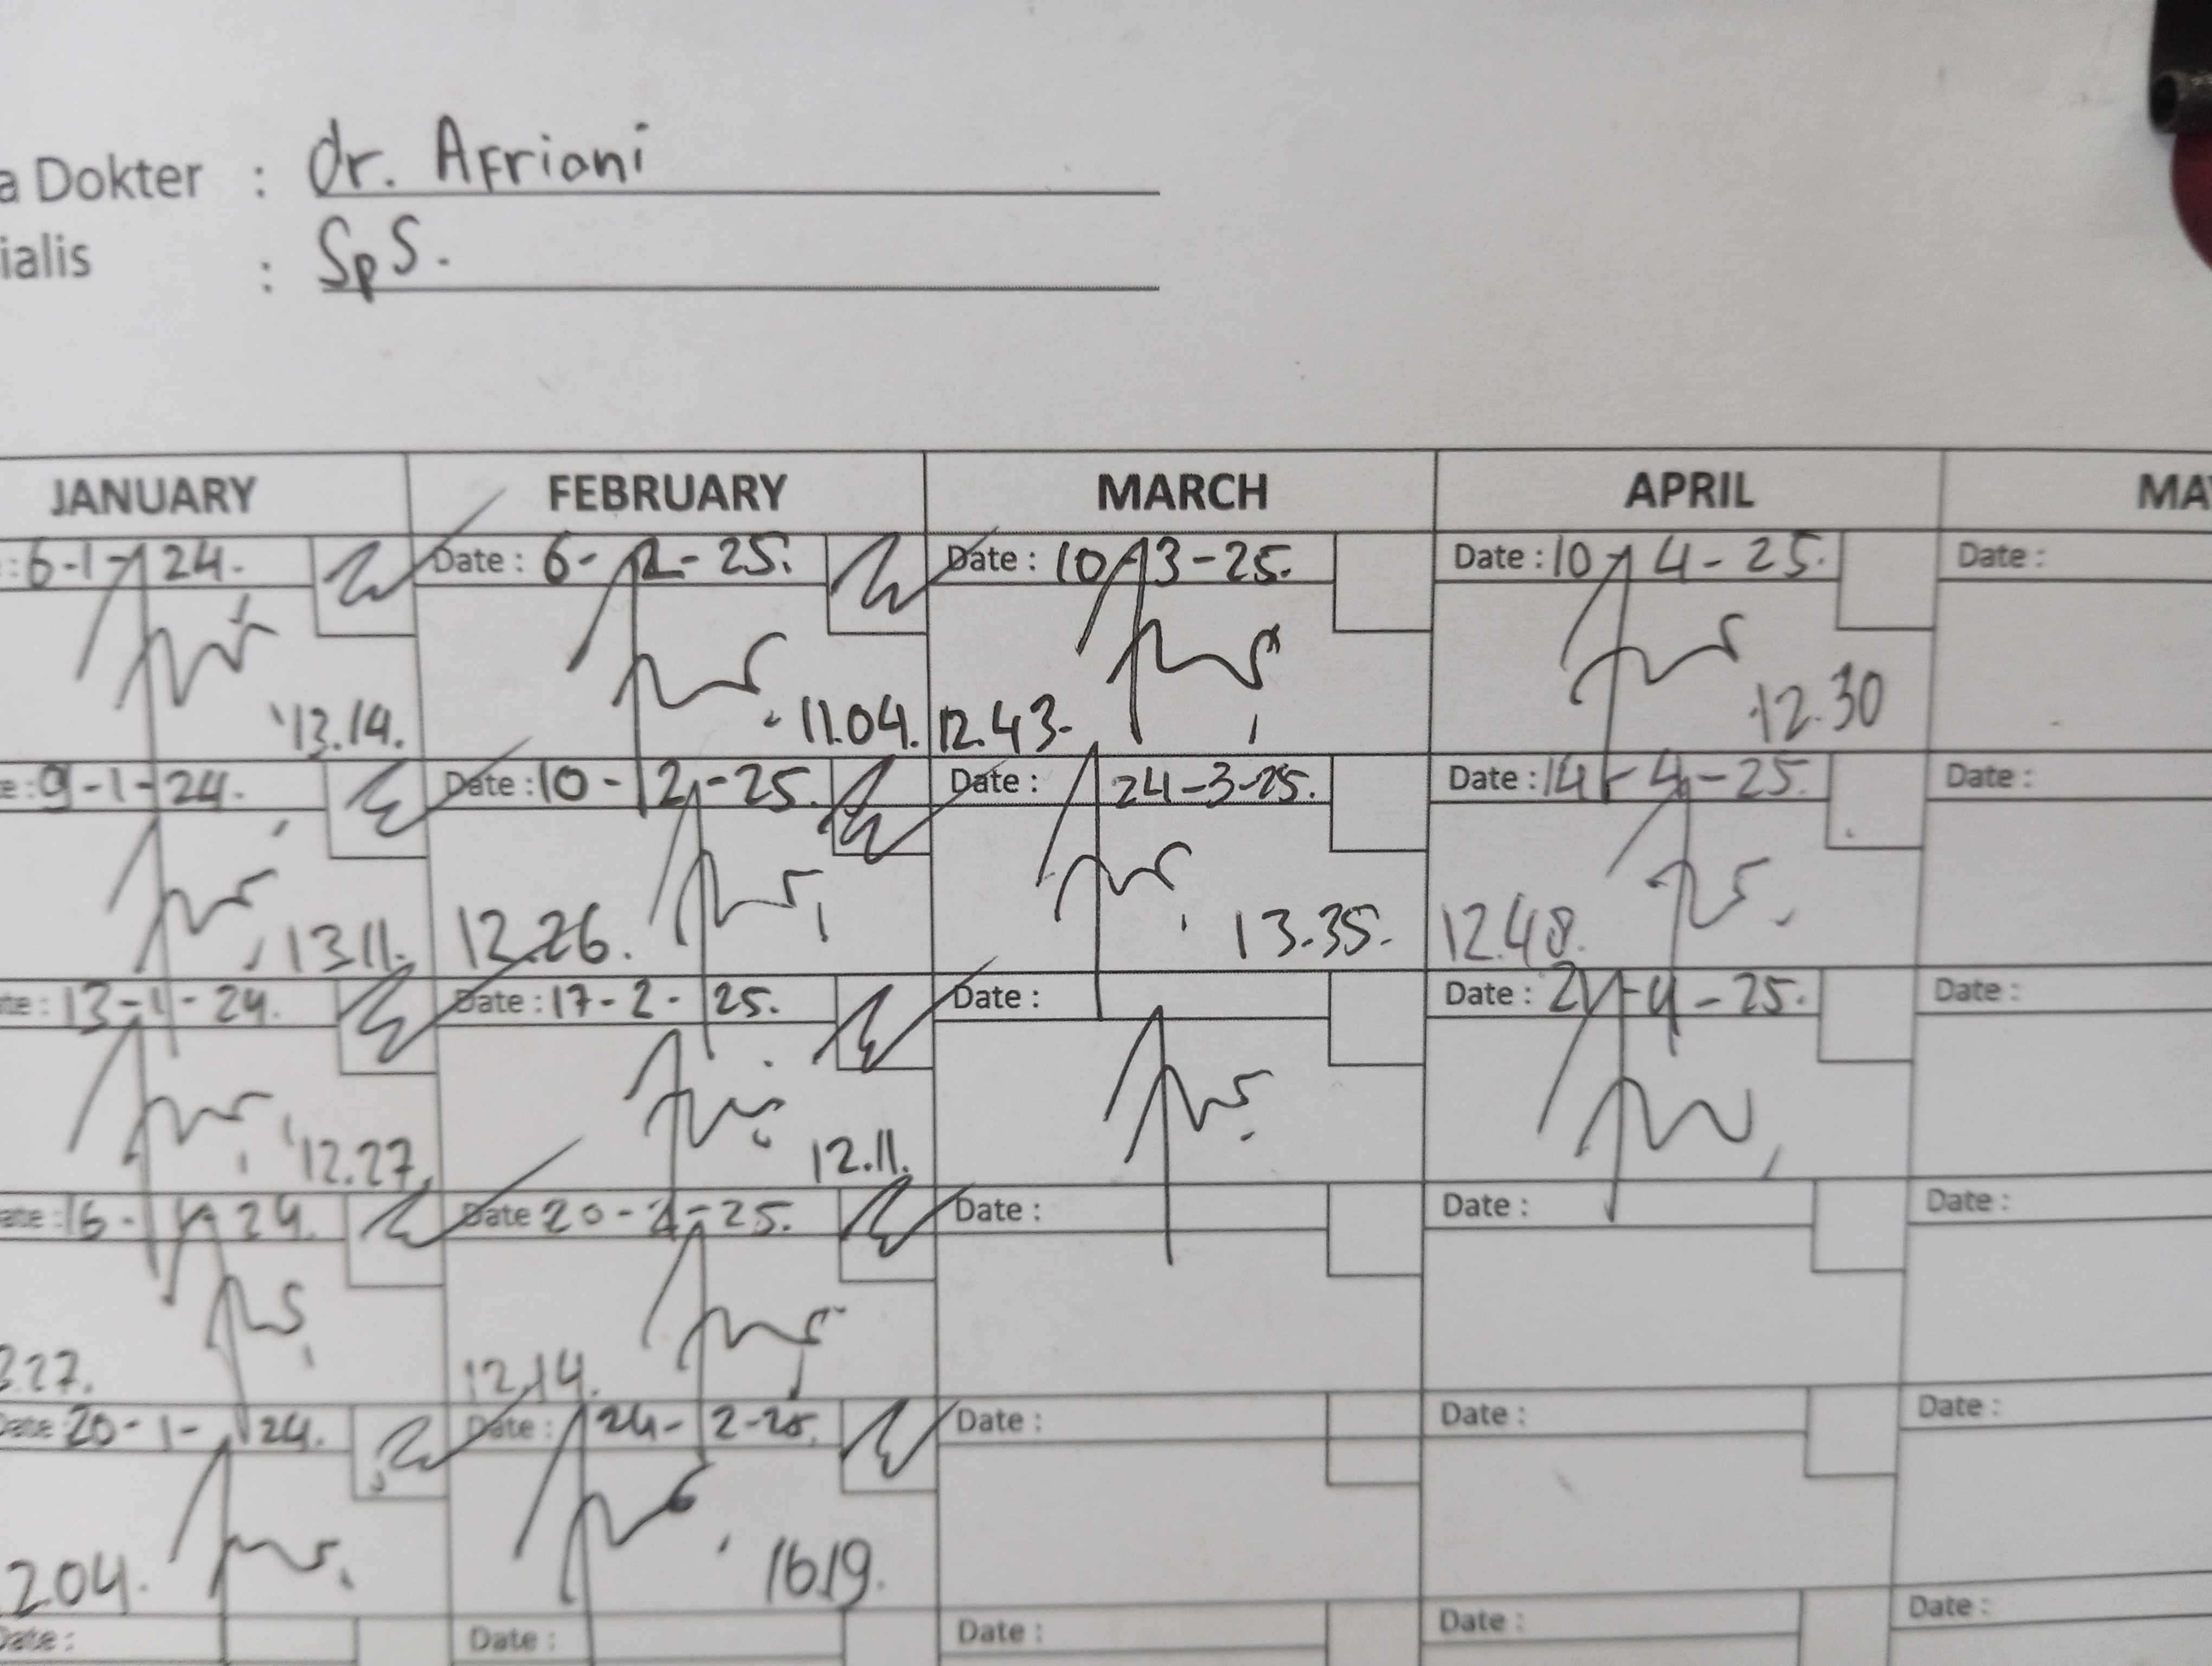 a Dokter : dr. Afriani
ialis : SpS.
JANUARY FEBRUARY MARCH APRIL MA
: 6-1-24. Date : 6-2-25. Date : 10-3-25. Date : 10-4-25. Date :
13.14. 11.04. 12.43. 12.30
e : 9-1-24. Date : 10-2-25. Date : 24-3-25. Date : 14-4-25. Date :
13.11. 12.26. 13.35. 12.48.
te : 13-1-24. Date : 17-2-25. Date : Date : 21-4-25. Date :
12.27. 12.11.
ate : 16-1-24. Date 20-2-25. Date : Date : Date :
2.27. 12.14.
Date 20-1-24. Date : 24-2-25. Date : Date : Date :
204. 16.19.
Date : Date : Date : Date : Date :